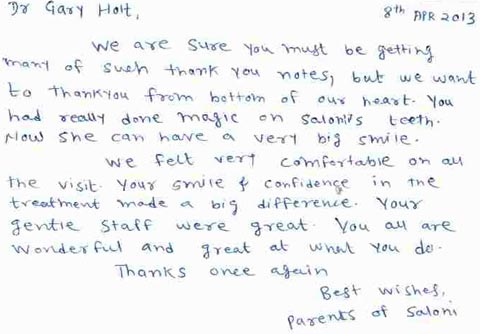 Dr Gary Holt, 8th APR 2013
We are sure you must be getting
many of such thank you notes, but we want
to thankyou from bottom of our heart. You
had really done magic on Saloni's teeth.
Now she can have a very big smile.
We felt very comfortable on all
the visit. Your smile & confidence in the
treatment made a big difference. Your
gentle staff were great. You all are
wonderful and great at what you do.
Thanks once again
Best wishes,
Parents of Saloni